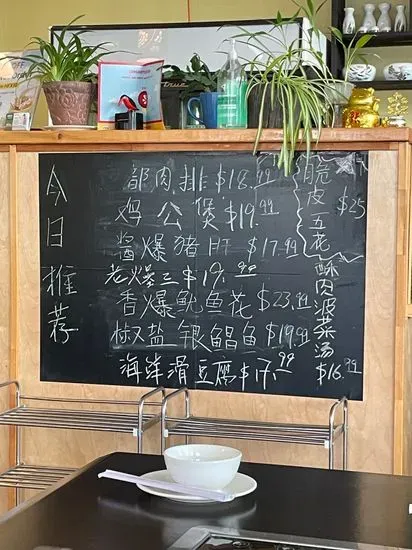 今日推荐
都肉排 $18.99
鸡公煲 $19.99
酱爆猪肝 $17.99
老爆三 $19.99
香爆鱿鱼花 $23.99
椒盐银鲳鱼 $19.99
海鲜滑豆腐 $17.99
脆皮五花
$25
酥肉菠菜汤
$16.99